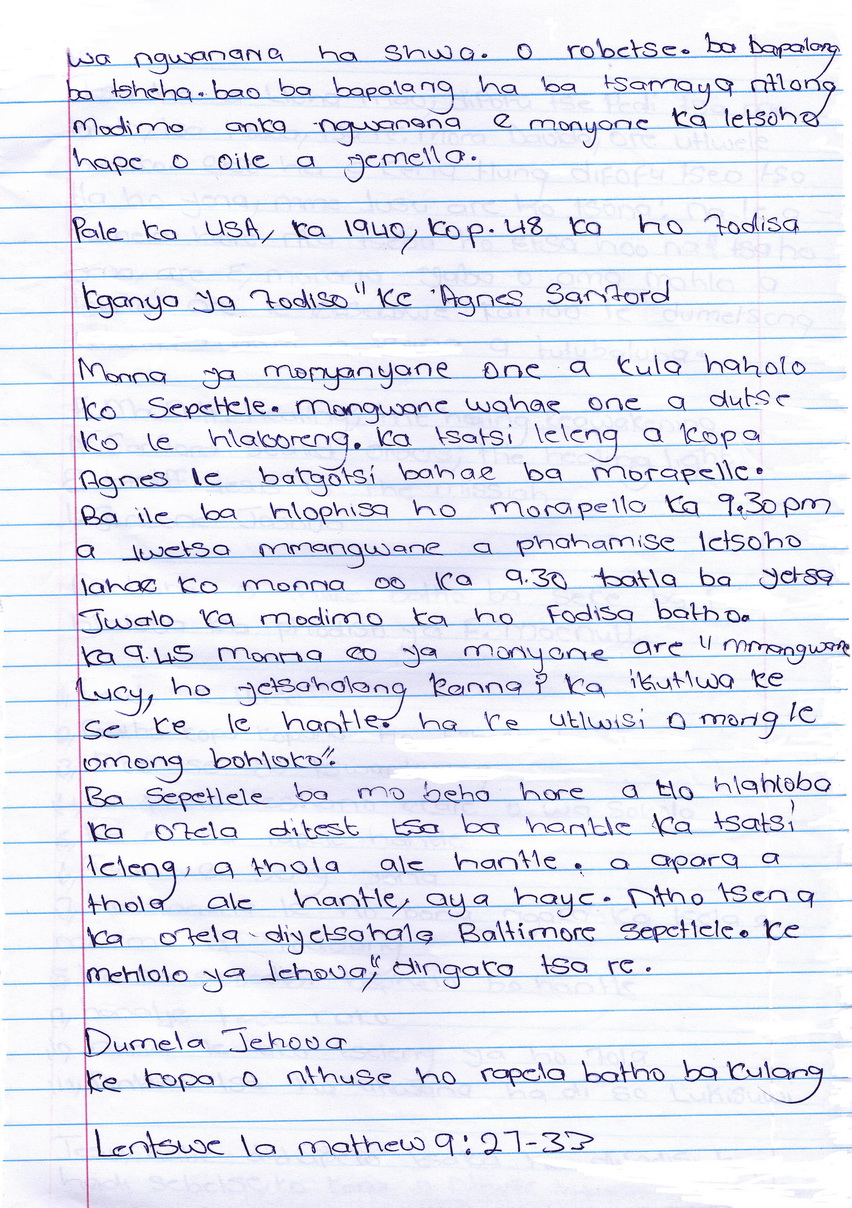 wa ngwanana ha shwa. O robetse. ba bapalang
ba tsheha. bao ba bapalang ha ba tsamaya ntlong
Modimo anka ngwanana e monyane ka letsoho
hape o oile a yemella.
Pale ko USA, ka 1940, ko p. 48 ka ho fodisa
kganya ya fodiso" ke Agnes Sanford
Monna ya monyanyane one a kula haholo
ko Sepetlele. mangwane wahae one a dutse
ko le hlakoreng. ka tsatsi leleng a kopa
Agnes le batgotsi bahae ba morapelle.
Ba ile ba hlophisa ho morapella ka 9.30pm
a Jwetsa mmangwane a phahamise letsoho
lahae ko monna oo ka 9.30 baatla ba yetsa
Jwalo ka modimo ka ho Fodisa batho.
ka 9.45 monna oo ya monyane are "mmangwane
Lucy, ho yetsaholang kanna? ka ikutlwa ke
se ke le hantle. ha ke utlwisi o mong le
omong bohloko".
Ba Sepetlele ba mo beha hore a tlo hlahloba
ka ofela ditest tsa ba hantle ka tsatsi
leleng, a thola ale hantle. a apara a
thola ale hantle, aya haye. Ntho tsena
ka ofela diyetsohala Baltimore Sepetlele. ke
mehlolo ya Jehova", dingaka tsa re.
Dumela Jehova
ke kopa o nthuse ho rapela batho ba kulang
Lentswe la mathew 9:27-33